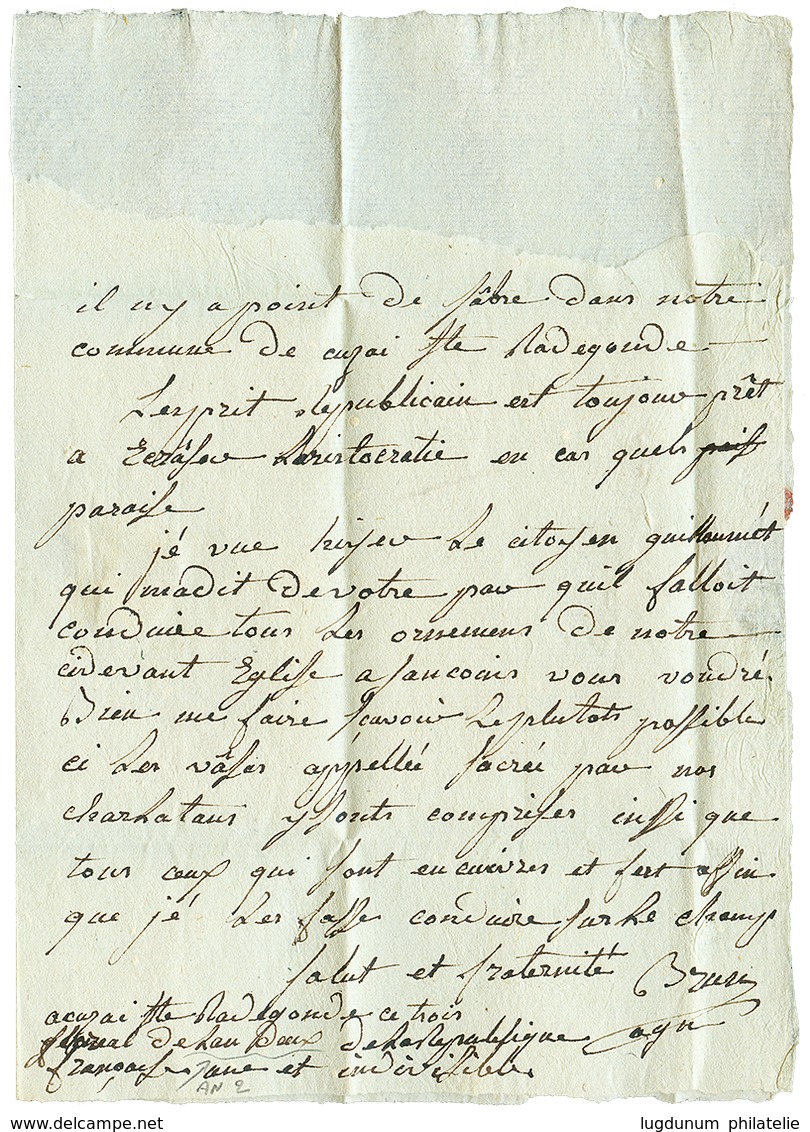 il ny a point de sâbre dans notre
commune de cuzai Ste Radegonde
Lesprit Republicain est toujour prêt
a Ecrâser Laristocratie en cas quels
paraise
jé vue hiyer Le citoyen guillaumét
qui madit devotre par quil falloit
conduire tous Les ornemens de notre
cidevant Eglise a sancoins vous voudré
Bien me faire scavoir Leplutots possible
ci Les vâses appellée sacrée par nos
charlatans ysonts comprises inssi que
tous ceux qui sont encuivres et fert affin
que jé Les fasse conduire surle champ
salut et fraternité Brun
acuzai Ste Radegonde ce trois agn
floreal de Lan Deux de la Republique
française une et indivisible
AN 2
lugdunum philatelie